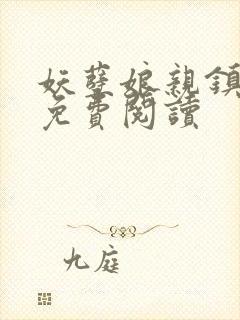 妖孽娘親鎮
免費閱讀
九庭